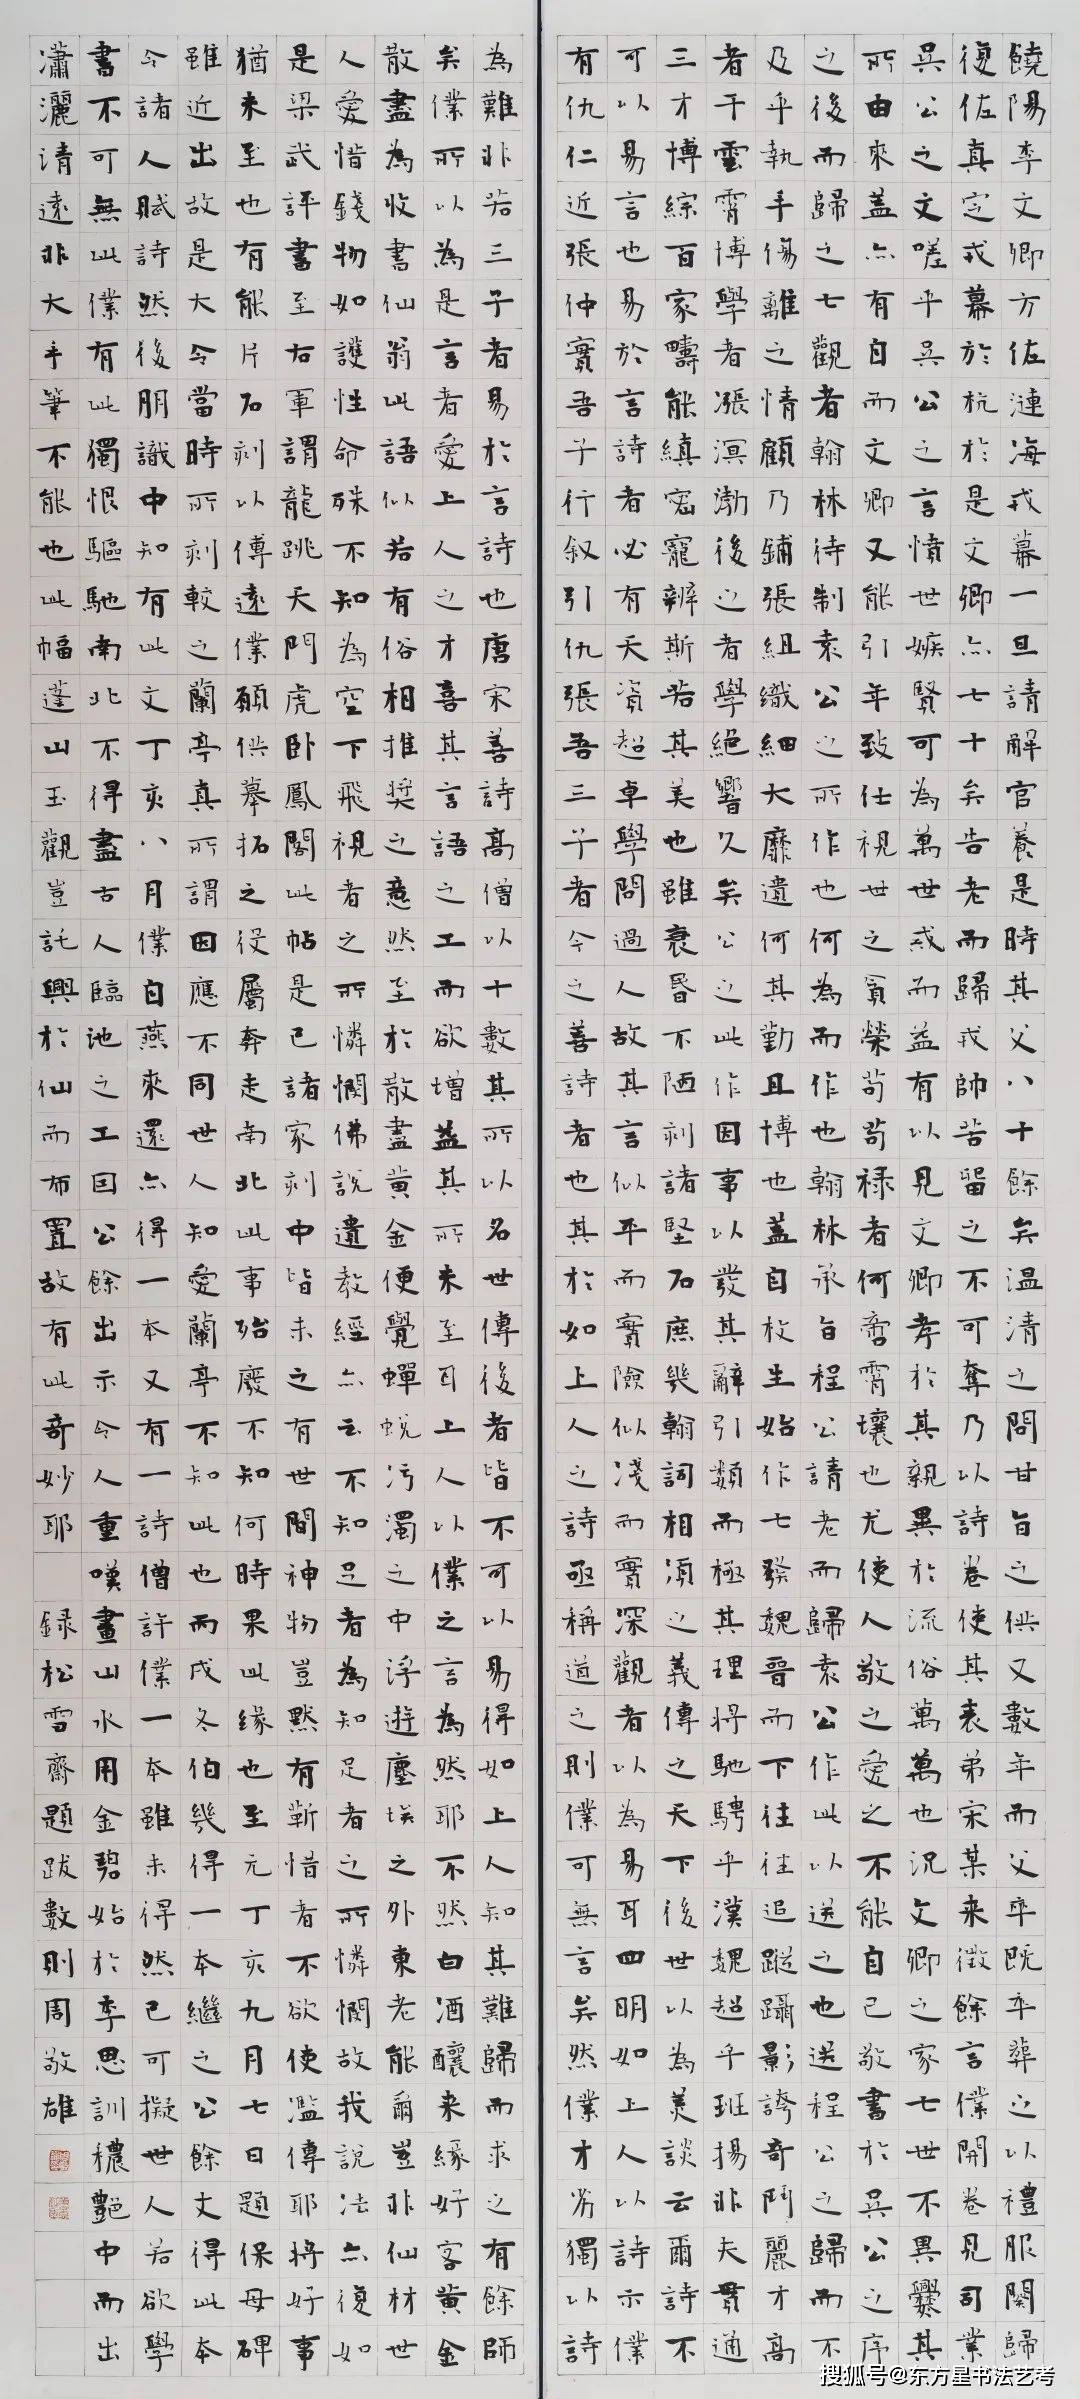 饒陽李文卿方佐漣海戎幕一旦請解官養是時其父八十餘矣温清之問甘旨之供又數年而父卒既卒葬之以禮服闋歸
復佐真定戎幕於杭於是文卿亦七十矣告老而歸戎帥苦留之不可奪乃以詩卷使其表弟宋某来徵餘言僕開卷見司業
吳公之文嗟乎吳公之言憤世嫉賢可為萬世戒而益有以見文卿孝於其親異於流俗萬萬也況文卿之家七世不異爨其
所由來蓋亦有自而文卿又能引年致仕視世之貪榮苟苟祿者何啻霄壤也尤使人敬之愛之不能自已敬書於吳公之序
之後而歸之七觀者翰林待制袁公之所作也何為而作也翰林承旨程公請老而歸袁公作此以送之也送程公之歸而不
及乎執手傷離之情顧乃鋪張組織細大靡遺何其勤且博也蓋自枚生始作七發魏晉而下往往追蹤躡影誇奇鬥麗才高
者干雲霄博學者漲溟渤後之者學絕響久矣公之此作因事以發其辭引類而極其理將馳騁乎漢魏超乎班揚非夫貫通
三才博綜百家疇能縝密寵辨斯若其美也雖衰晷不陋刻諸堅石庶幾翰詞相須之義傳之天下後世以為美談云爾詩不
可以易言也易於言詩者必有天資超卓學問過人故其言似平而實險似淺而實深觀者以為易耳四明如上人以詩示僕
有仇仁近張仲實吾子行叙引仇張吾三子者今之善詩者也其於如上人之詩亟稱道之則僕可無言矣然僕才劣獨以詩
為難非若三子者易於言詩也唐宋善詩高僧以十數其所以名世傳後者皆不可以易得如上人知其難歸而求之有餘師
矣僕所以為是言者愛上人之才喜其言語之工而欲增益其所未至耳上人以僕之言為然耶不然白酒釀来緣好客黃金
散盡為收書仙翁此語似若有俗相推獎之意然至於散盡黃金便覺蟬蛻污濁之中浮遊塵埃之外東老能爾豈非仙材世
人愛惜錢物如護性命殊不知為空下飛視者之所憐憫佛說遺教經亦云不知足者為知足者之所憐憫故我說法亦復如
是梁武評書至右軍謂龍跳天門虎卧鳳閣此帖是已諸家刻中皆未之有世間神物豈默有靳惜者不欲使濫傳耶將好事
猶未至也有能片石刻以傳遠僕願供摹拓之役屬奔走南北此事殆廢不知何時果此緣也至元丁亥九月七日題保母碑
雖近出故是大令當時所刻較之蘭亭真所謂因應不同世人知愛蘭亭不知此也而戌冬伯幾得一本繼之公餘丈得此本
今諸人賦詩然後朋識中知有此文丁亥八月僕自燕來還亦得一本又有一詩僧許僕一本雖未得然已可擬世人若欲學
書不可無此僕有此獨恨驅馳南北不得盡古人臨池之工因公餘出示令人重嘆畫山水用金碧始於李思訓穠艷中而出
瀟灑清遠非大手筆不能也此幅蓬山玉觀豈託興於仙而布置故有此奇妙耶 録松雪齋題跋數則周敬雄
搜狐号@东方星书法艺考